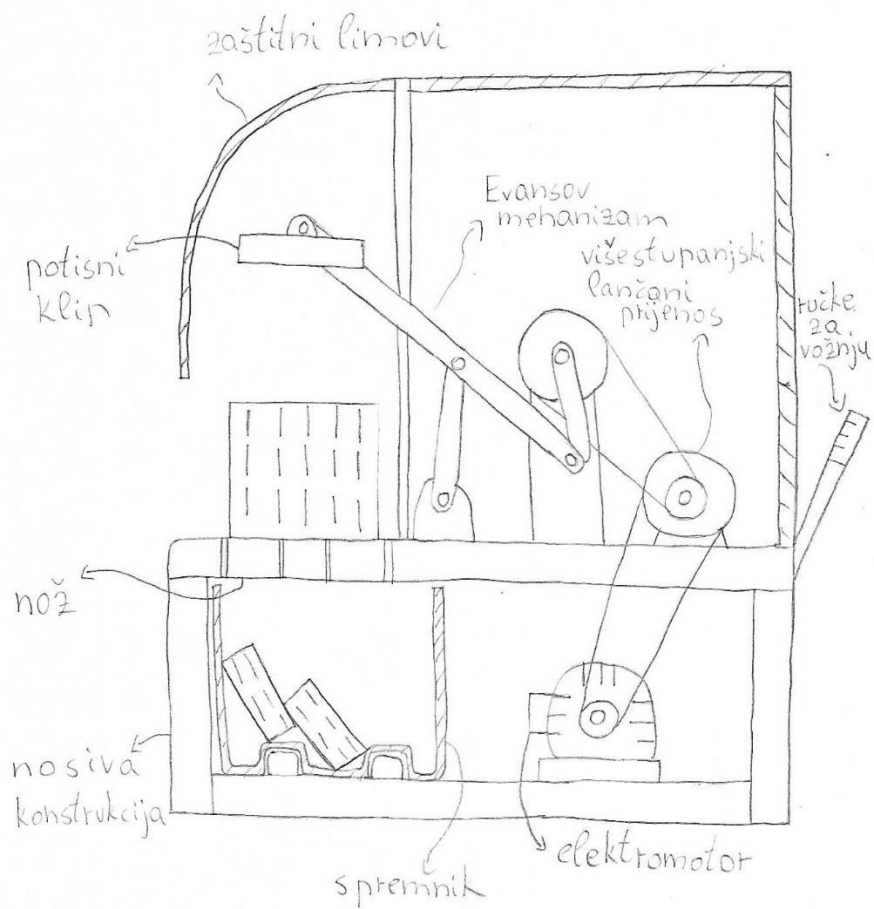 zaštitni limovi
Evansov
mehanizam
višestupanjski
lančani
prijenos
ručke
za
vožnju
potisni
klip
nož
nosiva
konstrukcija
spremnik
elektromotor